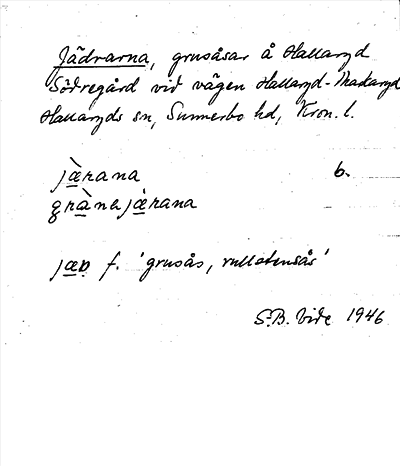 Jädrarna, grusåsar å Hallaryd
Södregård vid vägen Hallaryd-Markaryd
Hallaryds sn, Sunnerbo hd, Kron. l.
jæ̀rana b.
grànajæ̀rana
jæḍ f. 'grusås, rullstensås'
S.B. Vide 1946